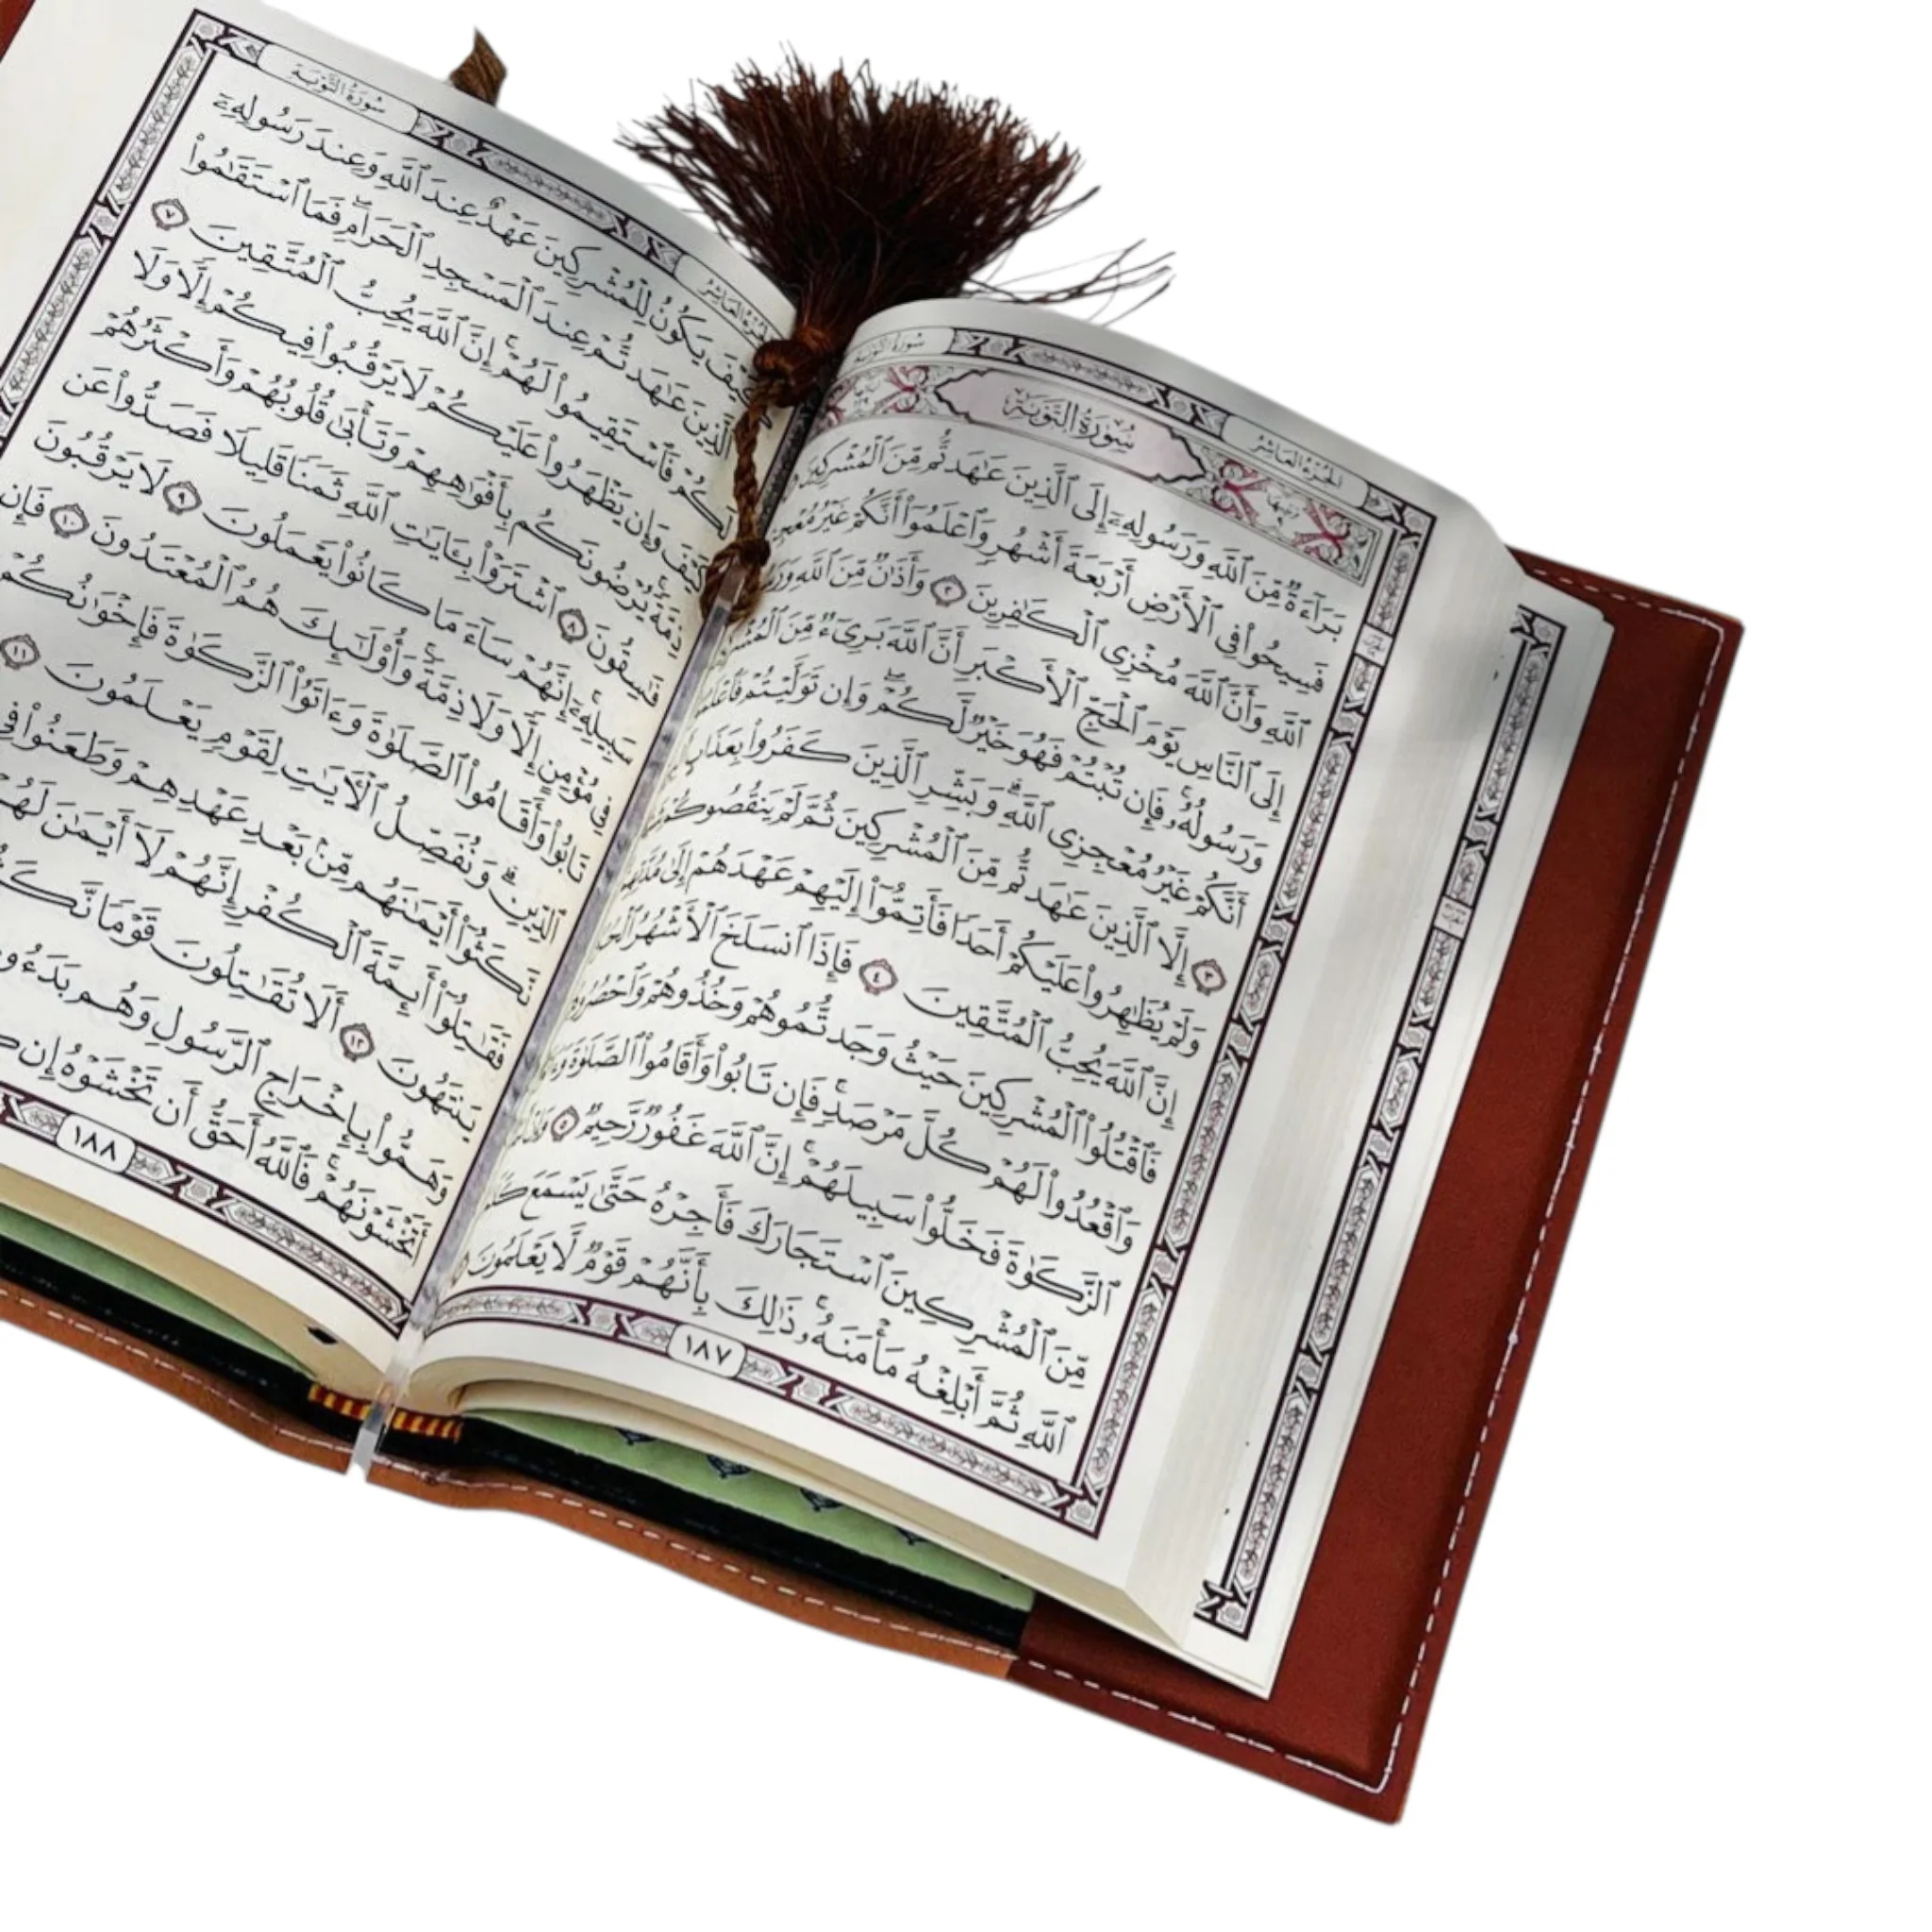 سُورَةُ التَّوْبَةِ
الجُزْءُ العَاشِرُ
سُورَةُ التَّوْبَةِ
بَرَآءَةٌ مِّنَ ٱللَّهِ وَرَسُولِهِۦٓ إِلَى ٱلَّذِينَ عَٰهَدتُّم مِّنَ ٱلْمُشْرِكِينَ
فَسِيحُوا۟ فِى ٱلْأَرْضِ أَرْبَعَةَ أَشْهُرٍ وَٱعْلَمُوٓا۟ أَنَّكُمْ غَيْرُ مُعْجِزِى
ٱللَّهِ وَأَنَّ ٱللَّهَ مُخْزِى ٱلْكَٰفِرِينَ ٢ وَأَذَٰنٌ مِّنَ ٱللَّهِ
إِلَى ٱلنَّاسِ يَوْمَ ٱلْحَجِّ ٱلْأَكْبَرِ أَنَّ ٱللَّهَ بَرِىٓءٌ مِّنَ
وَرَسُولُهُۥ فَإِن تُبْتُمْ فَهُوَ خَيْرٌ لَّكُمْ وَإِن تَوَلَّيْتُمْ
أَنَّكُمْ غَيْرُ مُعْجِزِى ٱللَّهِ وَبَشِّرِ ٱلَّذِينَ كَفَرُوا۟ بِعَذَابٍ
٣ إِلَّا ٱلَّذِينَ عَٰهَدتُّم مِّنَ ٱلْمُشْرِكِينَ ثُمَّ لَمْ يَنقُصُوكُمْ
وَلَمْ يُظَٰهِرُوا۟ عَلَيْكُمْ أَحَدًا فَأَتِمُّوٓا۟ إِلَيْهِمْ عَهْدَهُمْ إِلَىٰ مُدَّتِهِمْ
إِنَّ ٱللَّهَ يُحِبُّ ٱلْمُتَّقِينَ ٤ فَإِذَا ٱنسَلَخَ ٱلْأَشْهُرُ
فَٱقْتُلُوا۟ ٱلْمُشْرِكِينَ حَيْثُ وَجَدتُّمُوهُمْ وَخُذُوهُمْ وَٱحْصُرُوهُمْ
وَٱقْعُدُوا۟ لَهُمْ كُلَّ مَرْصَدٍ فَإِن تَابُوا۟ وَأَقَامُوا۟ ٱلصَّلَوٰةَ
ٱلزَّكَوٰةَ فَخَلُّوا۟ سَبِيلَهُمْ إِنَّ ٱللَّهَ غَفُورٌ رَّحِيمٌ ٥
مِّنَ ٱلْمُشْرِكِينَ ٱسْتَجَارَكَ فَأَجِرْهُ حَتَّىٰ يَسْمَعَ
ٱللَّهِ ثُمَّ أَبْلِغْهُ مَأْمَنَهُۥ ذَٰلِكَ بِأَنَّهُمْ قَوْمٌ لَّا يَعْلَمُونَ
١٨٧
الجُزْءُ العَاشِرُ
سُورَةُ التَّوْبَةِ
يَكُونُ لِلْمُشْرِكِينَ عَهْدٌ عِندَ ٱللَّهِ وَعِندَ رَسُولِهِۦٓ
ٱلَّذِينَ عَٰهَدتُّمْ عِندَ ٱلْمَسْجِدِ ٱلْحَرَامِ فَمَا ٱسْتَقَٰمُوا۟
لَكُمْ فَٱسْتَقِيمُوا۟ لَهُمْ إِنَّ ٱللَّهَ يُحِبُّ ٱلْمُتَّقِينَ ٧
كَيْفَ وَإِن يَظْهَرُوا۟ عَلَيْكُمْ لَا يَرْقُبُوا۟ فِيكُمْ إِلًّا وَلَا
يُرْضُونَكُم بِأَفْوَٰهِهِمْ وَتَأْبَىٰ قُلُوبُهُمْ وَأَكْثَرُهُمْ
فَٰسِقُونَ ٨ ٱشْتَرَوْا۟ بِـَٔايَٰتِ ٱللَّهِ ثَمَنًا قَلِيلًا فَصَدُّوا۟ عَن
سَبِيلِهِۦٓ إِنَّهُمْ سَآءَ مَا كَانُوا۟ يَعْمَلُونَ ٩ لَا يَرْقُبُونَ
مُؤْمِنٍ إِلًّا وَلَا ذِمَّةً وَأُو۟لَٰٓئِكَ هُمُ ٱلْمُعْتَدُونَ ١٠ فَإِن
تَابُوا۟ وَأَقَامُوا۟ ٱلصَّلَوٰةَ وَءَاتَوُا۟ ٱلزَّكَوٰةَ فَإِخْوَٰنُكُمْ
ٱلدِّينِ وَنُفَصِّلُ ٱلْـَٔايَٰتِ لِقَوْمٍ يَعْلَمُونَ ١١
نَّكَثُوٓا۟ أَيْمَٰنَهُم مِّنۢ بَعْدِ عَهْدِهِمْ وَطَعَنُوا۟ فِى
فَقَٰتِلُوٓا۟ أَئِمَّةَ ٱلْكُفْرِ إِنَّهُمْ لَآ أَيْمَٰنَ لَهُمْ
يَنتَهُونَ ١٢ أَلَا تُقَٰتِلُونَ قَوْمًا نَّكَثُوٓا۟
وَهَمُّوا۟ بِإِخْرَاجِ ٱلرَّسُولِ وَهُم بَدَءُوكُمْ
أَتَخْشَوْنَهُمْ فَٱللَّهُ أَحَقُّ أَن تَخْشَوْهُ إِن
١٨٨